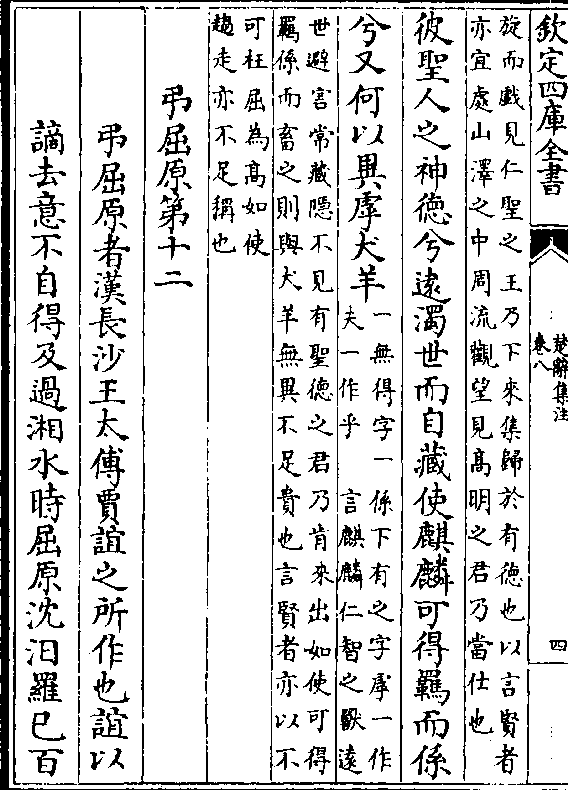 欽定四庫全書
楚辭集注
卷八
四
旋而戲見仁聖之王乃下來集歸於有德也以言賢者
亦宜處山澤之中周流觀望見髙明之君乃當仕也
彼聖人之神德兮遠濁世而自藏使麒麟可得羈而係
兮又何以異虖犬羊
一無得字一係下有之字虖一作
夫一作乎　言麒麟仁智之獸遠
世避害常藏隠不見有聖德之君乃肯來出如使可得
羈係而畜之則與犬羊無異不足貴也言賢者亦以不
可枉屈為髙如使
趨走亦不足稱也
弔屈原第十二
弔屈原者漢長沙王太傅賈誼之所作也誼以
謫去意不自得及過湘水時屈原沈汨羅已百